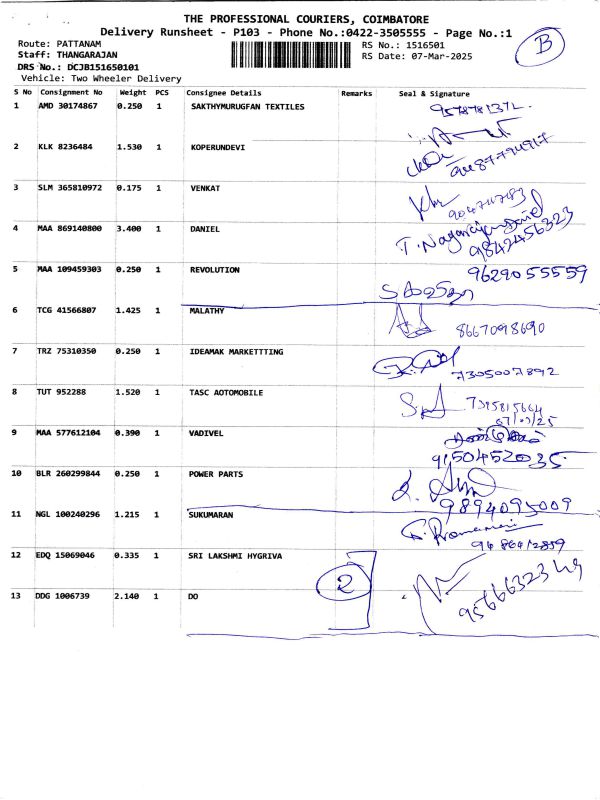 THE PROFESSIONAL COURIERS, COIMBATORE
Delivery Runsheet - P103 - Phone No.:0422-3505555 - Page No.:1
Route: PATTANAM RS No.: 1516501
Staff: THANGARAJAN RS Date: 07-Mar-2025
DRS No.: DCJB151650101
Vehicle: Two Wheeler Delivery
B
S No Consignment No Weight PCS Consignee Details Remarks Seal & Signature
1 AMD 30174867 0.250 1 SAKTHYMURUGFAN TEXTILES
2 KLK 8236484 1.530 1 KOPERUNDEVI 9487794917
3 SLM 365810972 0.175 1 VENKAT
4 MAA 869140800 3.400 1 DANIEL 9842456323
5 MAA 109459303 0.250 1 REVOLUTION 9629055559
6 TCG 41566807 1.425 1 MALATHY 8667098690
7 TRZ 75310350 0.250 1 IDEAMAK MARKETTTING 7305007892
8 TUT 952288 1.520 1 TASC AOTOMOBILE 7395815664
07/03/25
9 MAA 577612104 0.390 1 VADIVEL 9150452035
10 BLR 260299844 0.250 1 POWER PARTS 9894095009
11 NGL 100240296 1.215 1 SUKUMARAN 9486412859
12 EDQ 15069046 0.335 1 SRI LAKSHMI HYGRIVA
2
13 DDG 1006739 2.140 1 DO